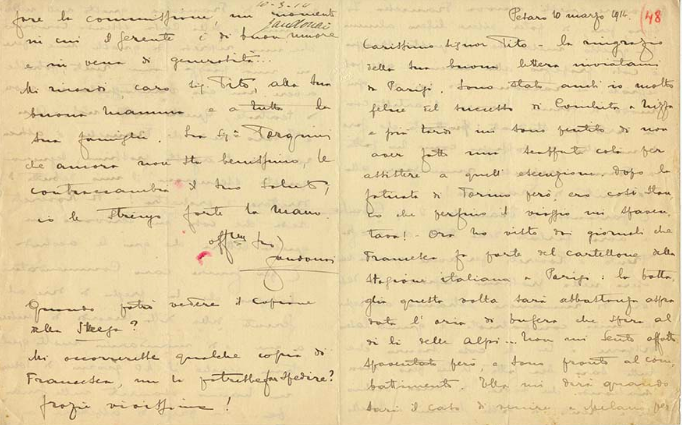 Pesaro 10 marzo 1914
(48
Carissimo Signor Tito – La ringrazio
della sua buona lettera inviatami
da Parigi. Sono stato anch'io molto
felice del successo di Conchita a Nizza
e più tardi mi sono pentito di non
aver fatto una scappata colà per
assistere a quell' esecuzione. Dopo la
faticata di Torino però, ero così stan
co che perfino il viaggio mi spaven
tava! Ora ho visto dai giornali che
Francesca fa parte del cartellone della
stagione italiana a Parigi: la batta
glia questa volta sarà abbastanza aspra
data l'aria di bufera che spira al
di là delle Alpi... Non mi sento affatto
spaventato però, e sono pronto al com
battimento. Ella mi dirà quando
sarà il caso di venire a Milano, per
10-3-14
Zandonai
fare la commissione, un momento
in cui il gerente è di buon umore
e in vena di generosità...
Mi ricordi, caro Sig. Tito, alla sua
buona Mamma e a tutta la
sua famiglia. La Sig.na Tarquini
che ancora non sta benissimo, le
contraccambia il suo saluto;
io le stringo forte la mano.
aff.mo suo
Zandonai
Quando potrò vedere il copione
della Strega?
Mi occorrerebbe qualche copia di
Francesca, me le potrebbe far spedire?
Grazie vivissime!